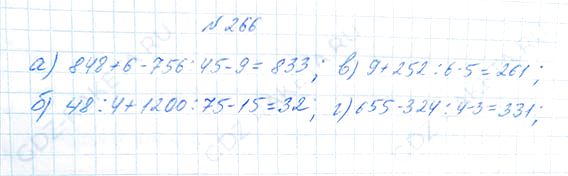 № 266
а) 848+6-756:45-9=833; в) 9+252:6·5=261;
б) 48:4+1200:75-15=32; г) 655-324:4·3=331;